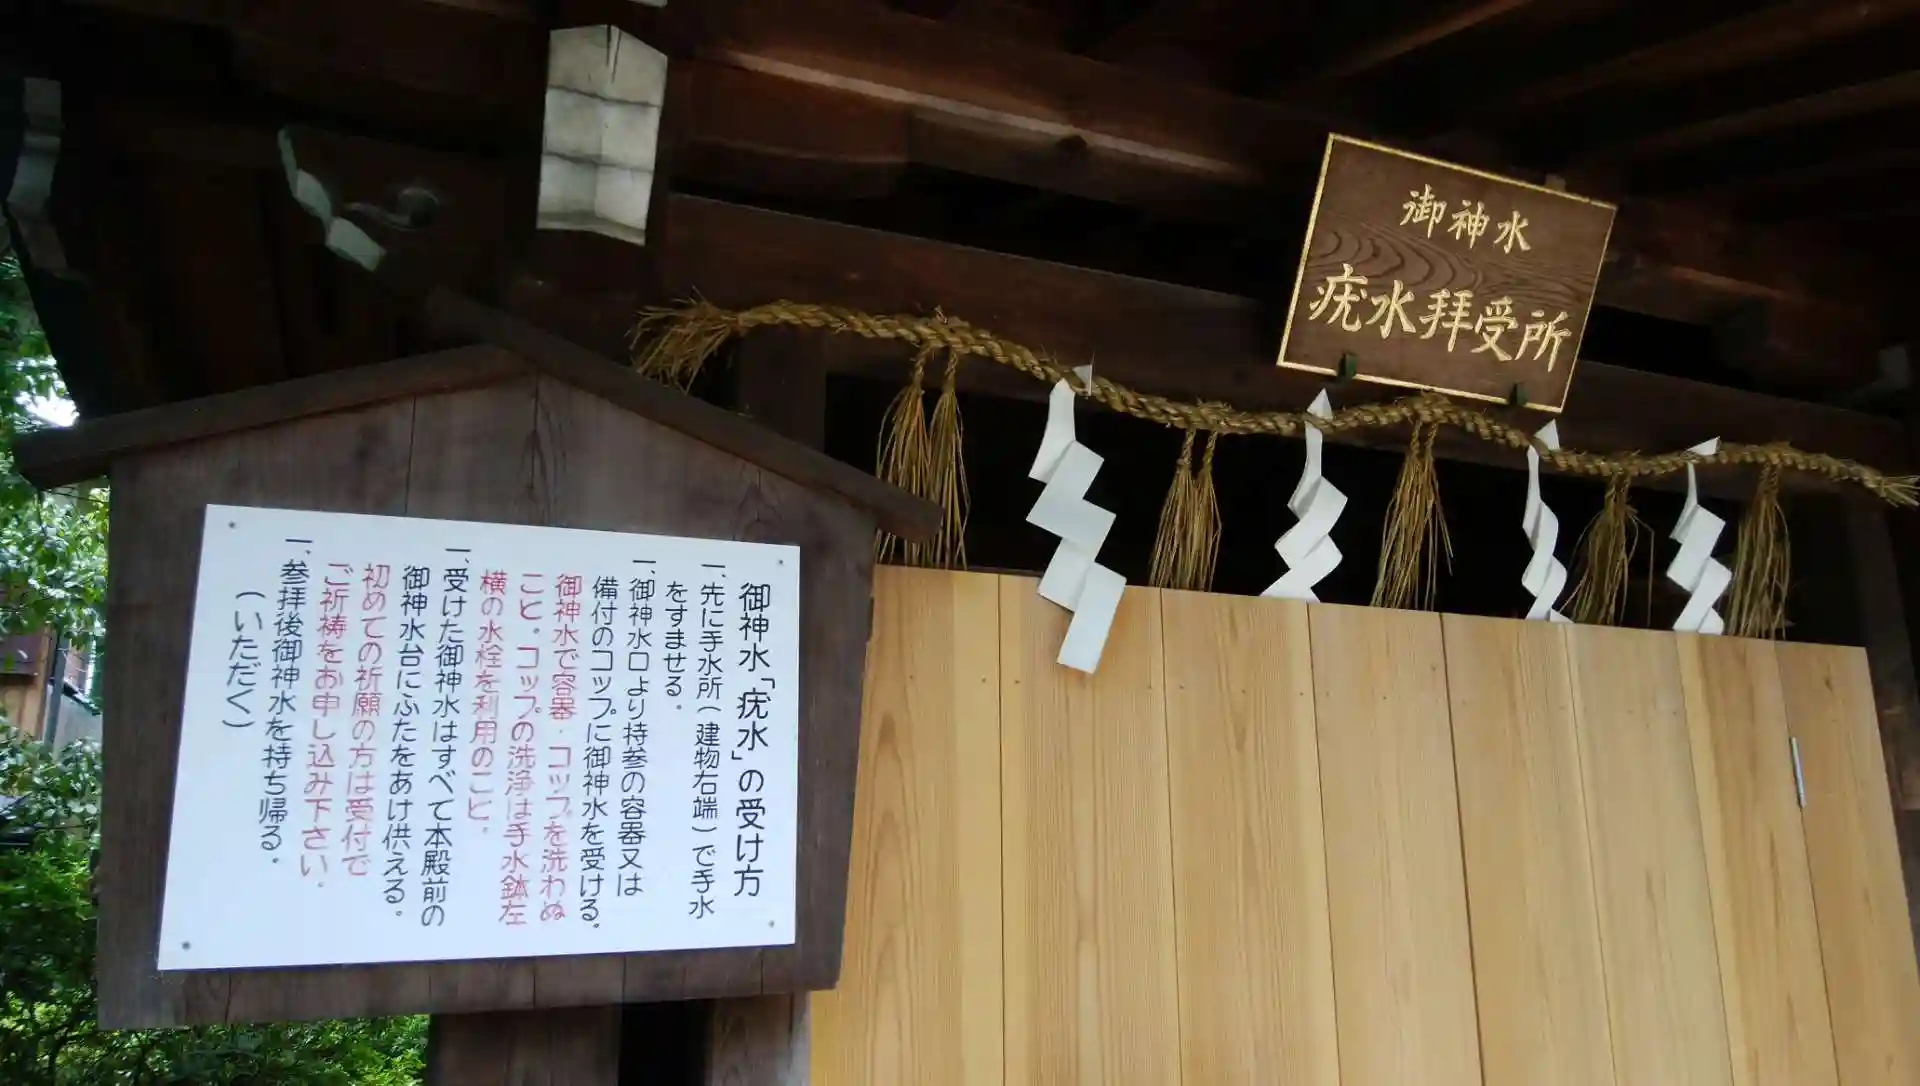 御神水
疣水拝受所
御神水「疣水」の受け方
一、先に手水所（建物右端）で手水
をすませる。
一、御神水口より持参の容器又は
備付のコップに御神水を受ける。
御神水で容器・コップを洗わぬ
こと。コップの洗浄は手水鉢左
横の水栓を利用のこと。
一、受けた御神水はすべて本殿前の
御神水台にふたをあけ供える。
初めての祈願の方は受付で
ご祈祷をお申し込み下さい。
一、参拝後御神水を持ち帰る。
（いただく）